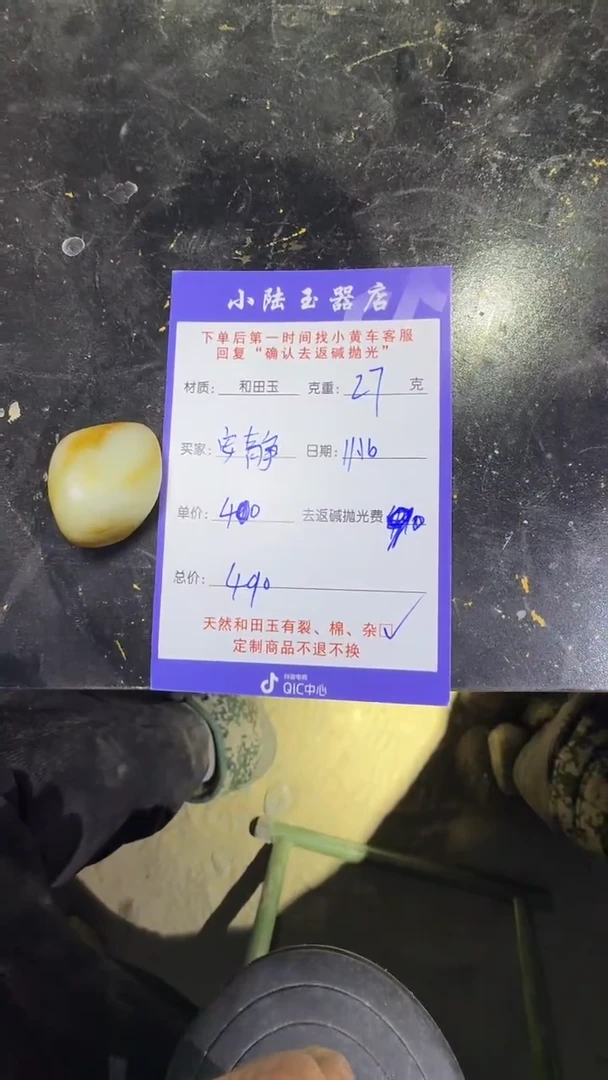 小陆玉器店
下单后第一时间找小黄车客服
回复“确认去返碱抛光”
材质: 和田玉 克重: 27 克
买家: 安静 日期: 11.16
单价: 400 去返碱抛光费 90
总价: 490
天然和田玉有裂、棉、杂☑
定制商品不退不换
抖音电商
QIC中心